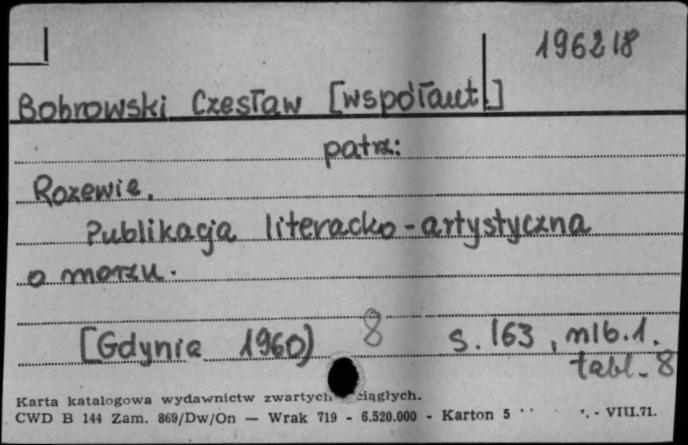 196218
Bobrowski Czesław [współaut.]
patrz:
Rozewie.
Publikacja literacko-artystyczna
o morzu.
[Gdynia 1960) 8 s. 163, nlb. 1.
tabl. 8
Karta katalogowa wydawnictw zwartych ciągłych.
CWD B 144 Zam. 869/Dw/On — Wrak 719 - 6.520.000 - Karton 5 - VIII.71.